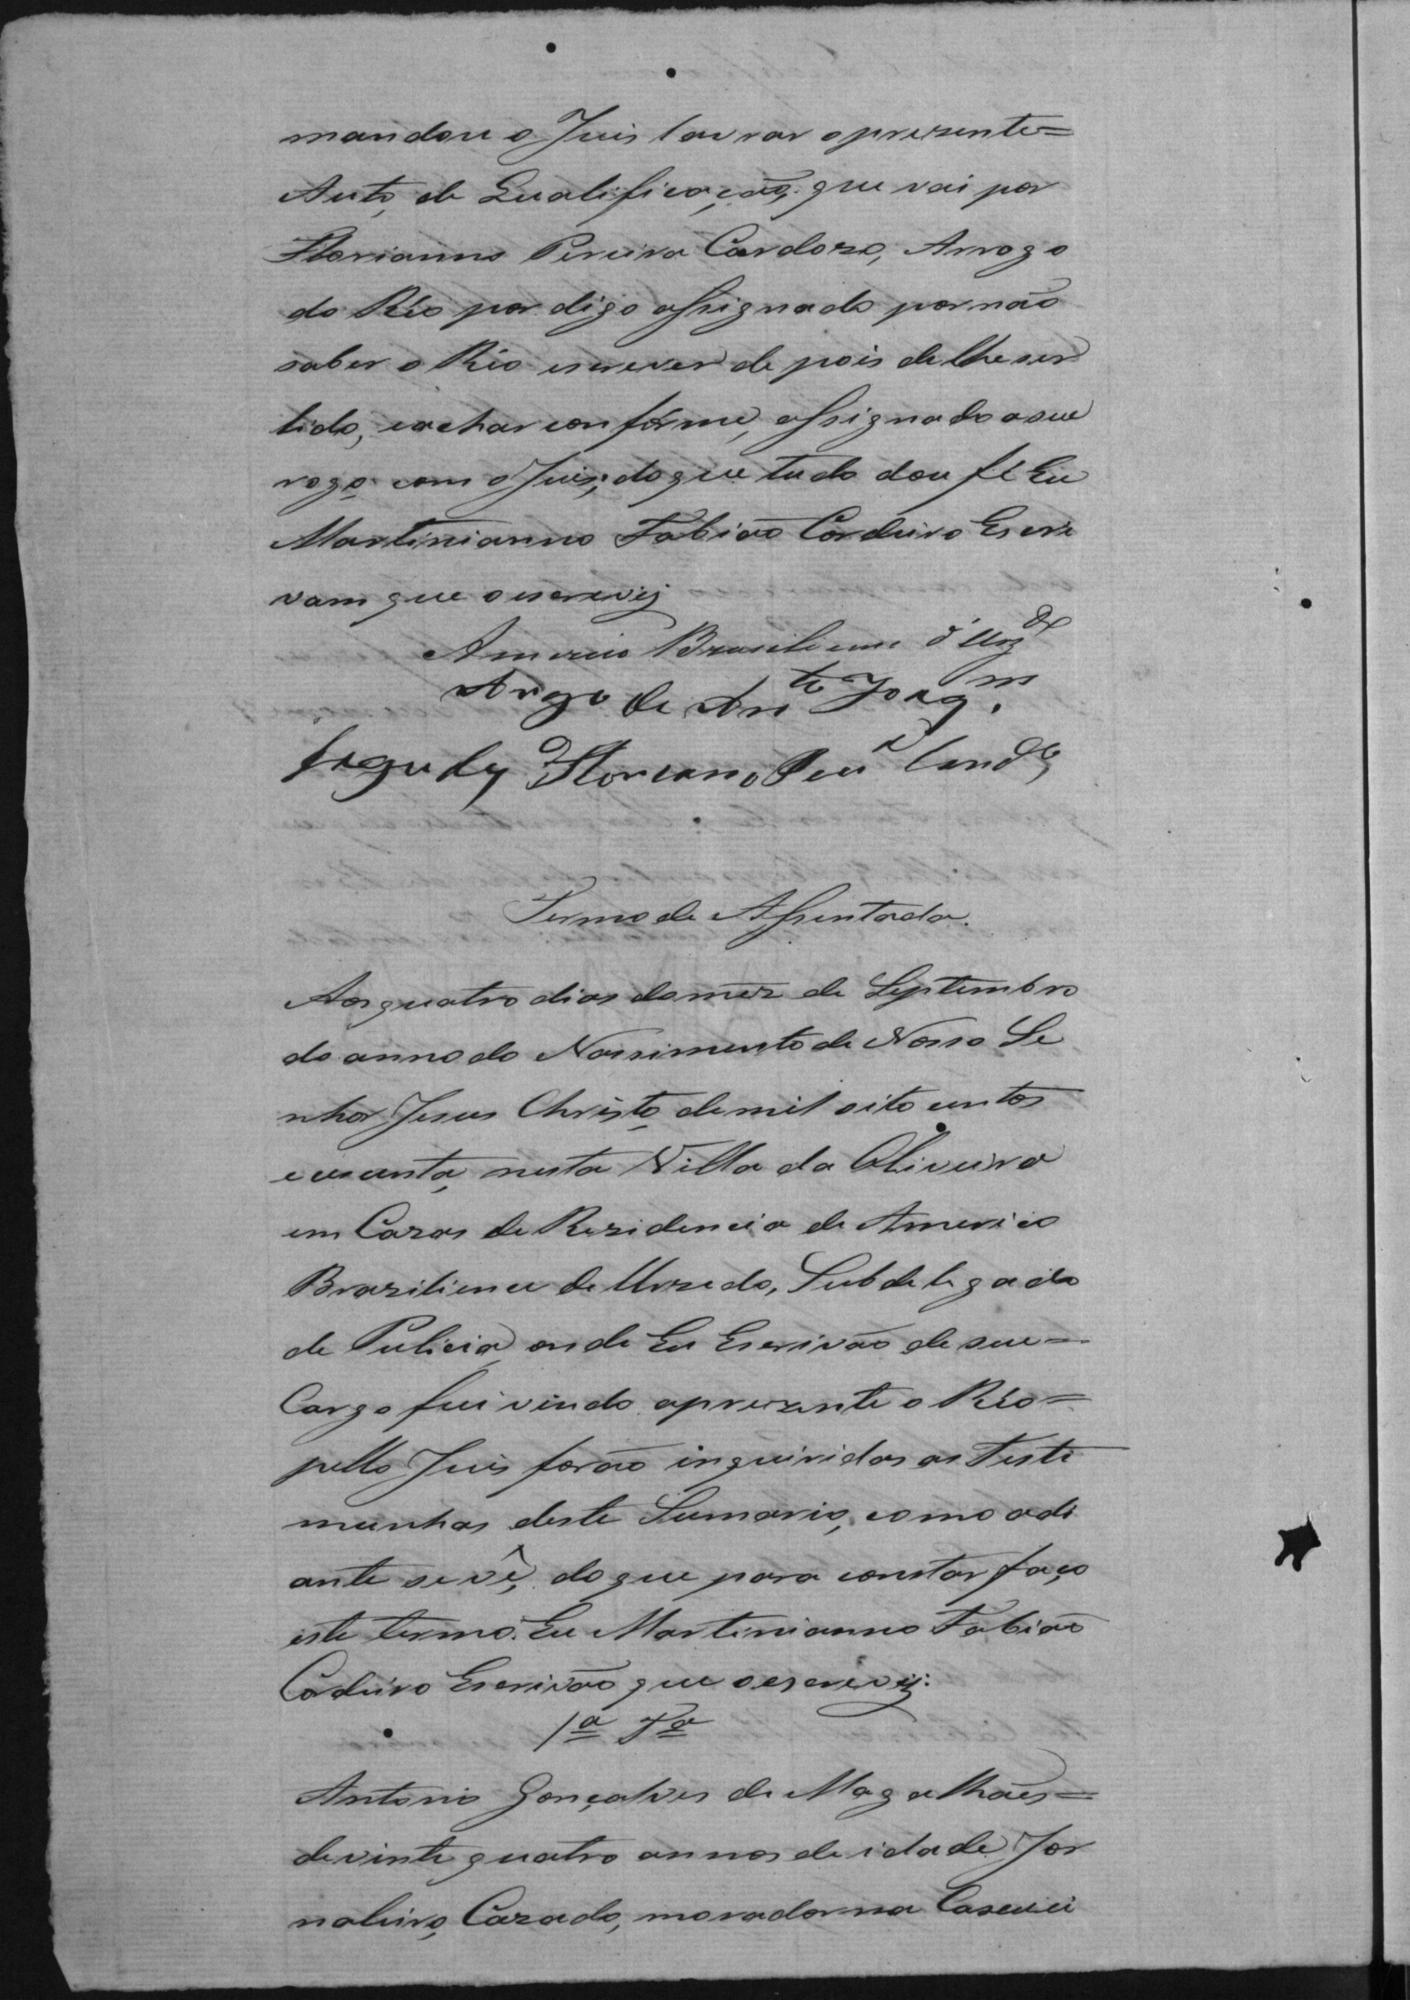 mandou o Juis lavrar o prezente=
Auto de Qualificação, que vai por
Florianno Pereira Cardozo, Arrogo
do Réo por digo assignado por não
saber o Réo escrever de pois de lhe ser
lido, e achar conforme, assignado a seu
rogo com o Juis; do que tudo dou fé Eu
Martinianno Fabião Cordeiro Escri
vam que o escrevij
Americo Braziliense d'Urz.do
Argo de Anto Joaqm.
Floriano Perª
Termo de Assentada.
Aos quatro dias do mez de Septembro
do anno do Nassimento de Nosso Se
nhor Jesus Christo de mil oito centos
e cecenta, nesta Villa da Oliveira
em Cazas de Rezidencia de Americo
Braziliense de Urzedo, Subdelegado
de Pulicia, onde Eu Escrivão de seu=
Cargo fui vindo, aprezente o Réo=
pello Juis forão inquiridas as Teste
munhas deste Sumario, como adi
ante se vê, do que para constar faço
este termo. Eu Martinianno Fabião
Cordeiro Escrivão que o escrevij.
1ª Tª
Antonio Gonçalves de Magalhães=
de vinte quatro annos de idade, Jor
naleiro, Cazado, morador na